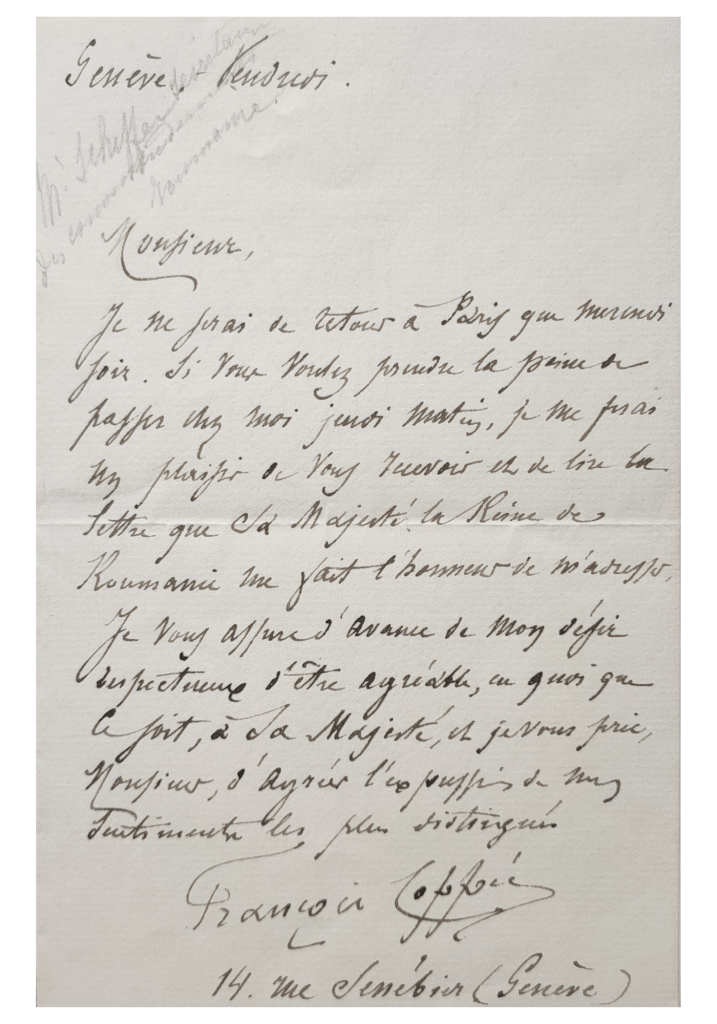 Genève. Vendredi.
Mr. Scheffer
Roumanie.
Monsieur,
Je ne serai de retour à Paris que mercredi
soir. Si vous voulez prendre la peine de
passer chez moi jeudi matin, je me ferai
un plaisir de vous recevoir et de lire la
lettre que Sa Majesté la Reine de
Roumanie me fait l'honneur de m'adresser.
Je vous assure d'avance de mon désir
respectueux d'être agréable, en quoi que
ce soit, à Sa Majesté, et je vous prie,
Monsieur, d'agréer l'expression de mes
sentiments les plus distingués
François Coppée
14. rue Sénébier (Genève)